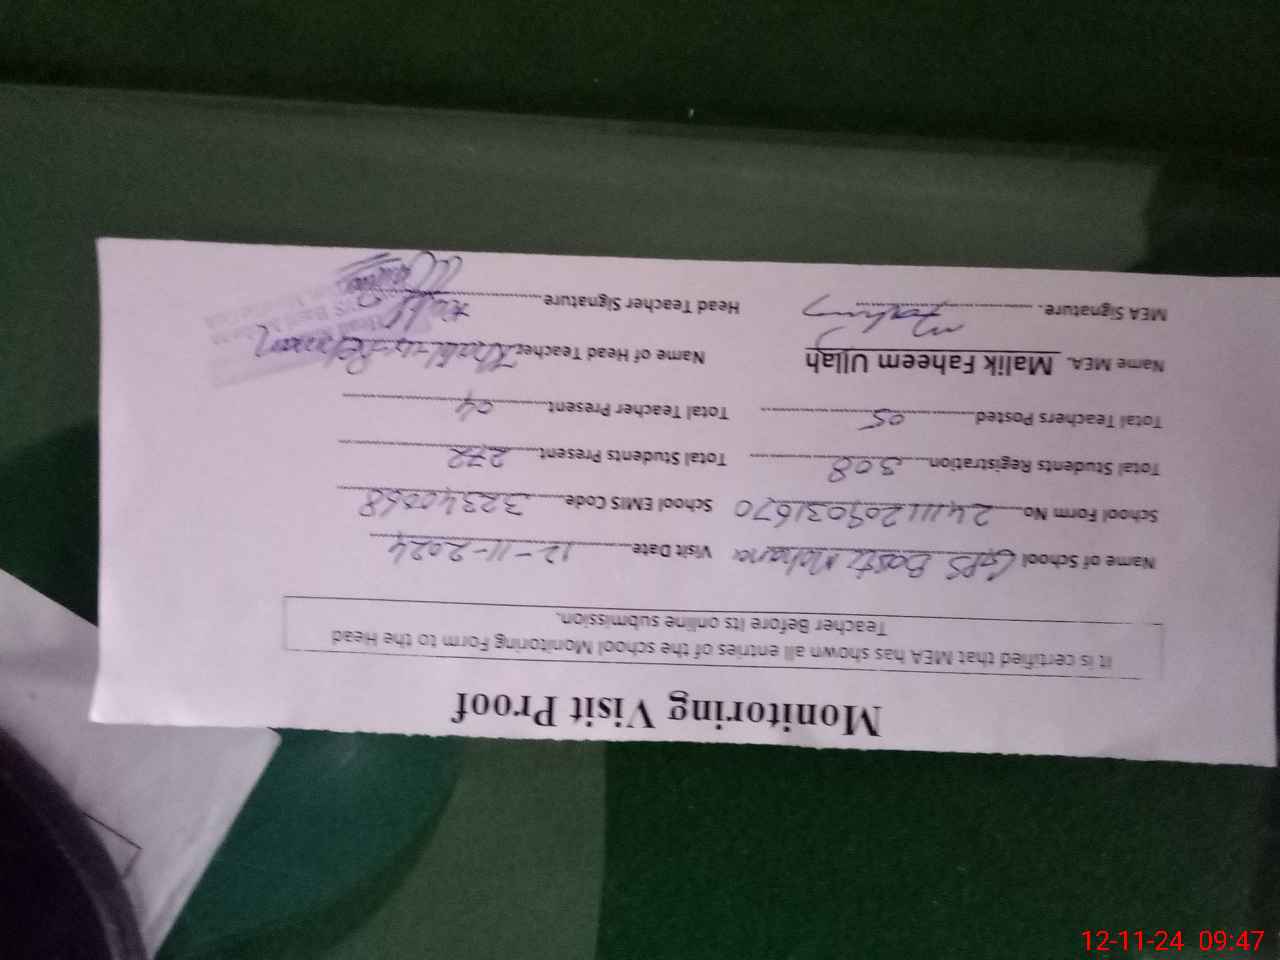 Monitoring Visit Proof
It is certified that MEA has shown all entries of the school Monitoring Form to the Head
Teacher Before Its online submission.
Name of School GPS Basti Mohana Visit Date 12-11-2024
School Form No. 24111209031670 School EMIS Code 32340068
Total Students Registration 308 Total Students Present 272
Total Teachers Posted 05 Total Teacher Present 04
Name MEA. Malik Faheem Ullah Name of Head Teacher Khalil ur Rehman
MEA Signature. Head Teacher Signature
12-11-24 09:47